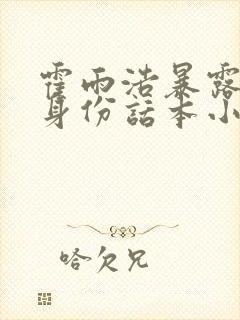 霍雨浩暴露
身份话本小
哈欠兄